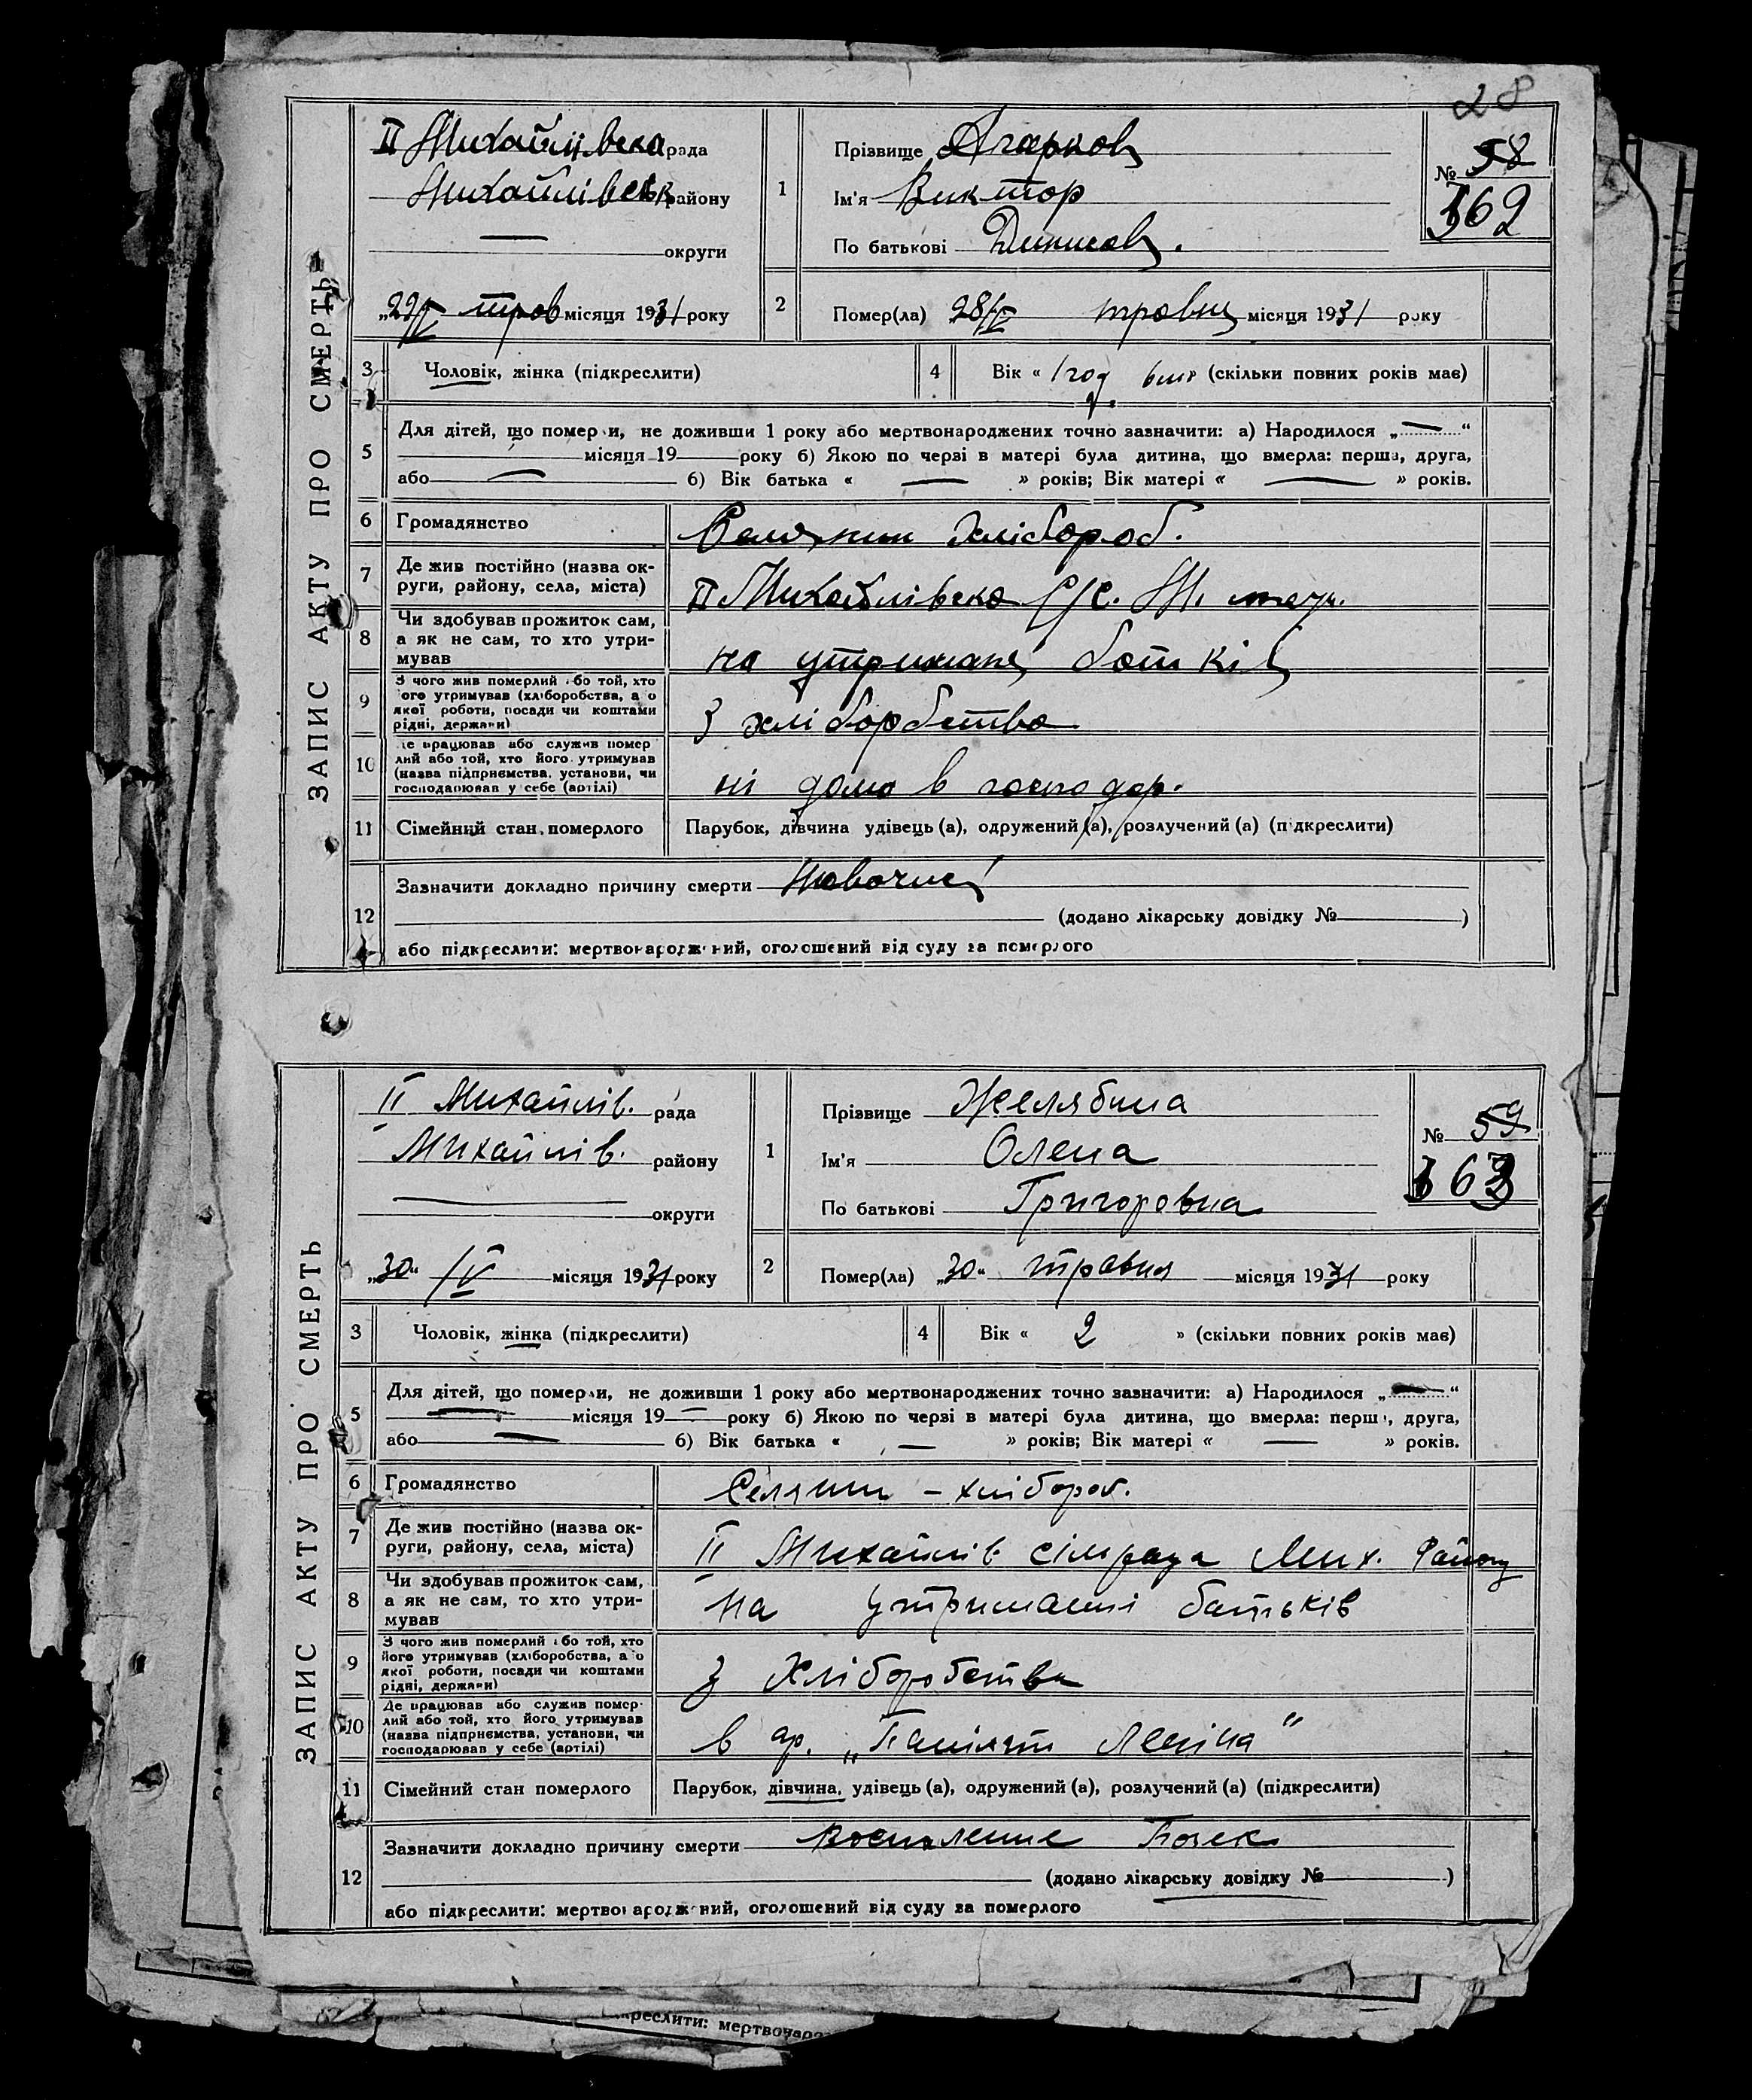 28
ЗАПИС АКТУ ПРО СМЕРТЬ
II Михайлівска рада
Михайлівськ району
округи
„29/V трав місяця 1931 року
1
Прізвище Агарков
Ім'я Виктор
По батькові Динисов.
№ 58
362
2
Помер(ла) „28/V травня місяця 1931 року
3 Чоловік, жінка (підкреслити)
4 Вік « 1 год (скільки повних років має)
5 Для дітей, що померли, не доживши 1 року або мертвонароджених точно зазначити: а) Народилося „ — “
місяця 19 року б) Якою по черзі в матері була дитина, що вмерла: перша, друга,
або — б) Вік батька « — » років; Вік матері « — » років.
6 Громадянство Селянин хлібороб.
7 Де жив постійно (назва ок-
руги, району, села, міста) II Михайлівска С/с. М.
8 Чи здобував прожиток сам,
а як не сам, то хто утри-
мував на утримані батків
9 З чого жив померлий або той, хто
його утримував (хліборобства, або
якої роботи, посади чи коштами
рідні, держави) З хліборбства
10 Де працював або служив помер
лий або той, хто його утримував
(назва підприємства, установи, чи
господарював у себе (артілі) ні дома в господар.
11 Сімейний стан померлого Парубок, дівчина удівець (а), одружений (а), розлучений (а) (підкреслити)
12 Зазначити докладно причину смерти
(додано лікарську довідку № )
або підкреслити: мертвонароджений, оголошений від суду за померлого
ЗАПИС АКТУ ПРО СМЕРТЬ
II Михайлів. рада
Михайлів. району
округи
„30“ /V місяця 1931 року
1
Прізвище Желябина
Ім'я Олена
По батькові Григоровна
№ 59
363
2
Помер(ла) „30“ травня місяця 1931 року
3 Чоловік, жінка (підкреслити)
4 Вік « 2 » (скільки повних років має)
5 Для дітей, що померли, не доживши 1 року або мертвонароджених точно зазначити: а) Народилося „ — “
місяця 19 — року б) Якою по черзі в матері була дитина, що вмерла: перша, друга,
або — б) Вік батька « — » років; Вік матері « — » років.
6 Громадянство Селянин – хлібороб.
7 Де жив постійно (назва ок-
руги, району, села, міста) II Михайлів. сільрада Мих. району
8 Чи здобував прожиток сам,
а як не сам, то хто утри-
мував на утриманні батьків
9 З чого жив померлий або той, хто
його утримував (хліборобства, або
якої роботи, посади чи коштами
рідні, держави) з Хліборобства
10 Де працював або служив помер-
лий або той, хто його утримував
(назва підприємства, установи, чи
господарював у себе (артілі) в ар. „Памінят Леніна“
11 Сімейний стан померлого Парубок, дівчина, удівець (а), одружений (а), розлучений (а) (підкреслити)
12 Зазначити докладно причину смерти Воспаление Почек
(додано лікарську довідку № )
або підкреслити: мертвонароджений, оголошений від суду за померлого
креслити: мертвонаро